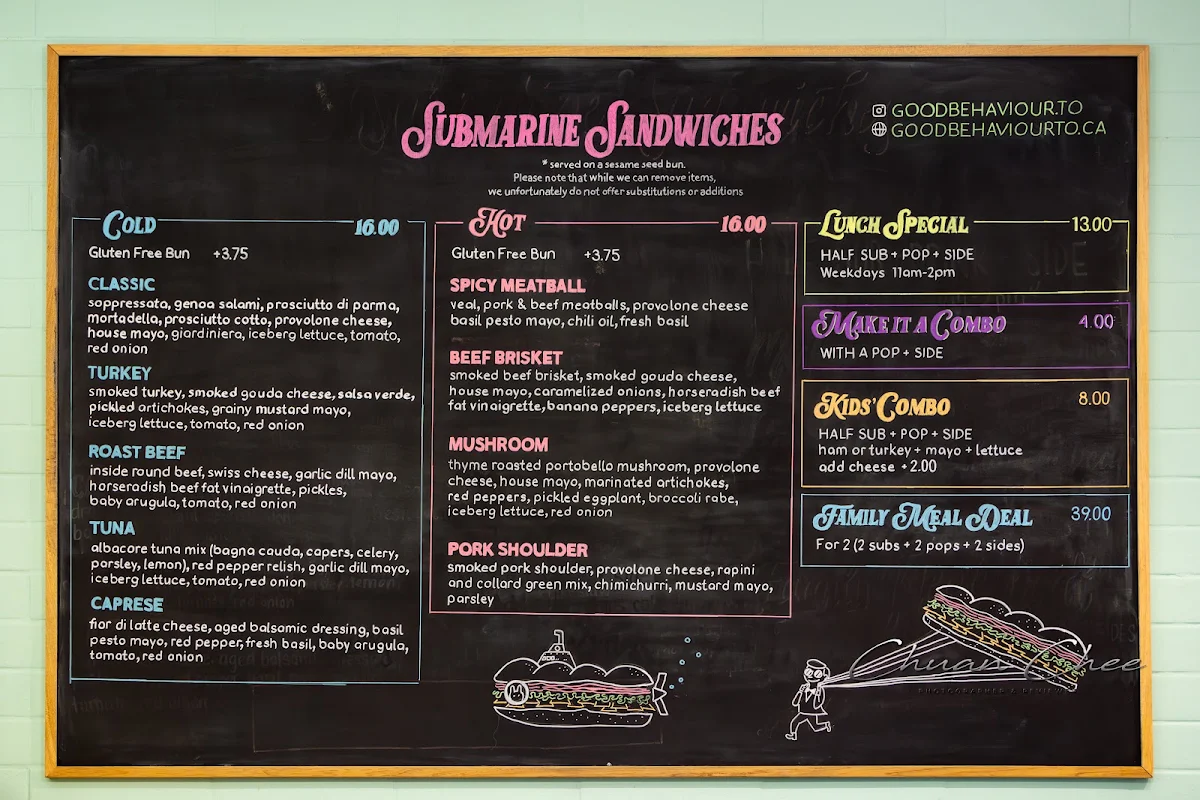 SUBMARINE SANDWICHES
* served on a sesame seed bun.
Please note that while we can remove items,
we unfortunately do not offer substitutions or additions
GOODBEHAVIOUR.TO
GOODBEHAVIOURTO.CA
COLD 16.00
Gluten Free Bun +3.75
CLASSIC
soppressata, genoa salami, prosciutto di parma,
mortadella, prosciutto cotto, provolone cheese,
house mayo, giardiniera, iceberg lettuce, tomato,
red onion
TURKEY
smoked turkey, smoked gouda cheese, salsa verde,
pickled artichokes, grainy mustard mayo,
iceberg lettuce, tomato, red onion
ROAST BEEF
inside round beef, swiss cheese, garlic dill mayo,
horseradish beef fat vinaigrette, pickles,
baby arugula, tomato, red onion
TUNA
albacore tuna mix (bagna cauda, capers, celery,
parsley, lemon), red pepper relish, garlic dill mayo,
iceberg lettuce, tomato, red onion
CAPRESE
fior di latte cheese, aged balsamic dressing, basil
pesto mayo, red pepper, fresh basil, baby arugula,
tomato, red onion
HOT 16.00
Gluten Free Bun +3.75
SPICY MEATBALL
veal, pork & beef meatballs, provolone cheese
basil pesto mayo, chili oil, fresh basil
BEEF BRISKET
smoked beef brisket, smoked gouda cheese,
house mayo, caramelized onions, horseradish beef
fat vinaigrette, banana peppers, iceberg lettuce
MUSHROOM
thyme roasted portobello mushroom, provolone
cheese, house mayo, marinated artichokes,
red peppers, pickled eggplant, broccoli rabe,
iceberg lettuce, red onion
PORK SHOULDER
smoked pork shoulder, provolone cheese, rapini
and collard green mix, chimichurri, mustard mayo,
parsley
LUNCH SPECIAL 13.00
HALF SUB + POP + SIDE
Weekdays 11am-2pm
MAKE IT A COMBO 4.00
WITH A POP + SIDE
KIDS' COMBO 8.00
HALF SUB + POP + SIDE
ham or turkey + mayo + lettuce
add cheese +2.00
FAMILY MEAL DEAL 39.00
For 2 (2 subs + 2 pops + 2 sides)
Chuan Ghee
PHOTOGRAPHER & REVIEWER